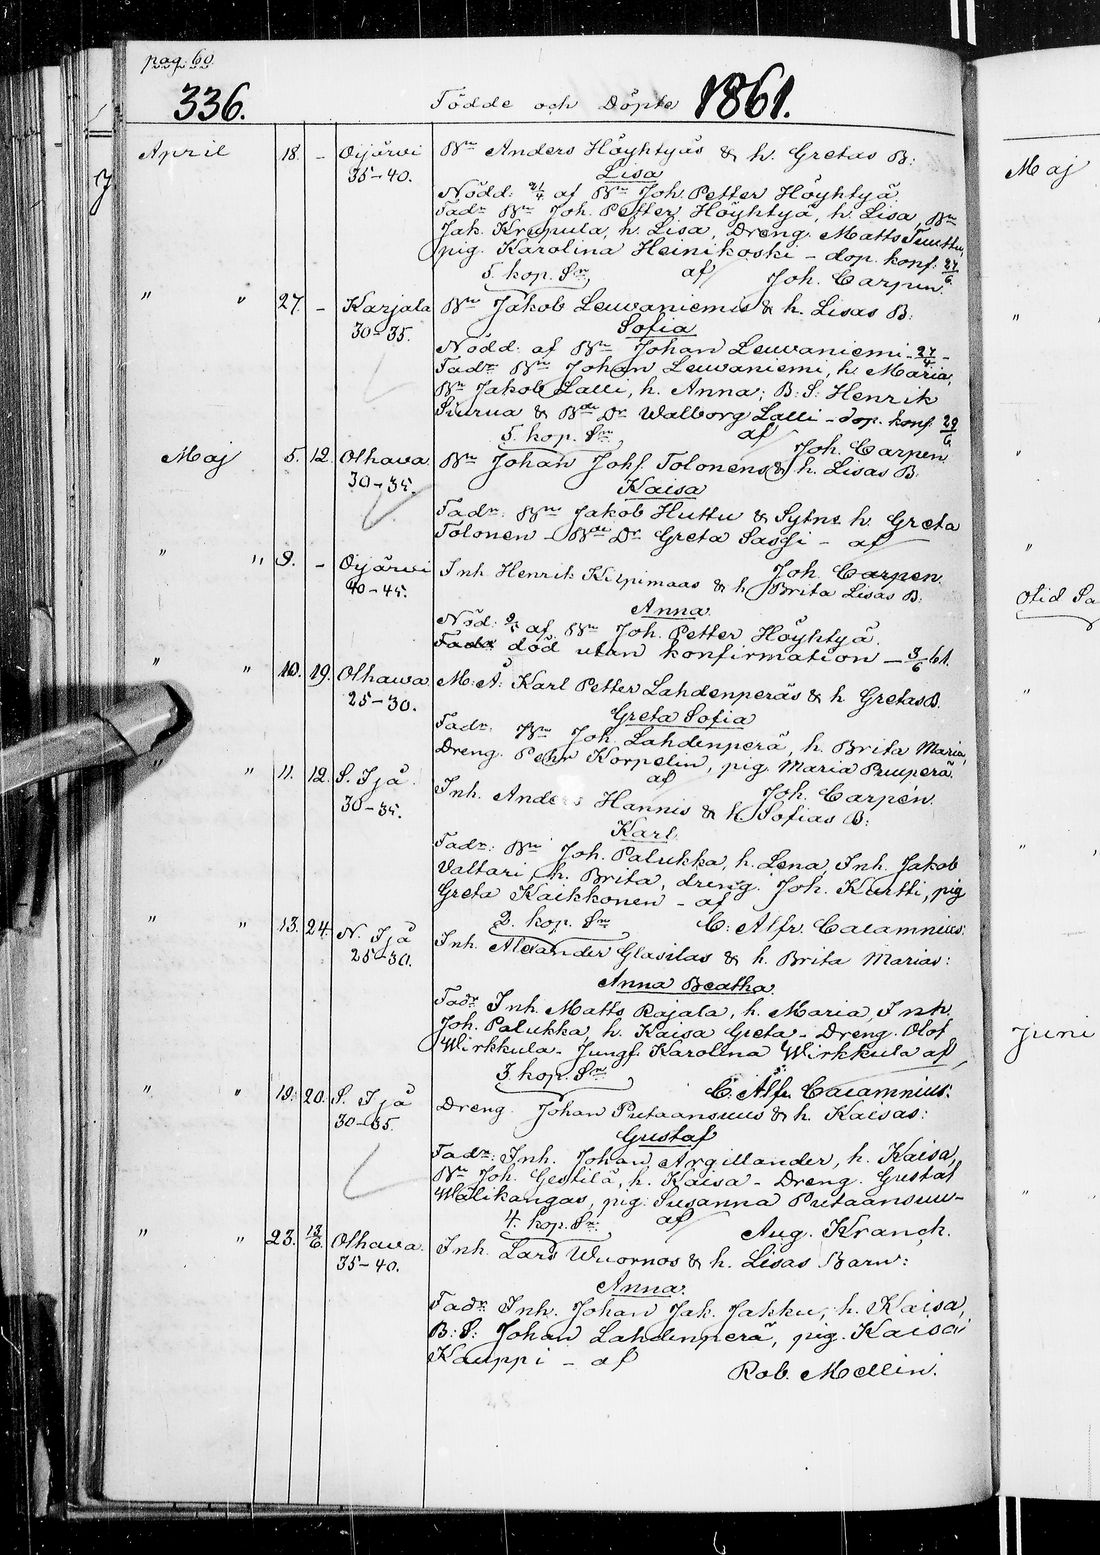 pag. 60.
336. Födde och Döpte 1861.
April 18. - Oijärvi Bn Anders Höyhtyäs & h. Gretas B:
35-40. Lisa
Nödd: 21/4 af Bn Joh. Petter Höyhtyä.
Fadr Bn Joh. Petter Höyhtyä, h. Lisa, Bn
Jak. Krupula, h. Lisa, Dreng. Matts Tuuttu,
pig. Karolina Heinikoski - dop. konf. 27/6.
5. kop. Sr af Joh. Carpen.
" " 27. - Karjala Bn Jakob Leuvaniemis & h. Lisas B:
30-35. Sofia
Nödd: af Bn Johan Leuvaniemi - 27/4 -
Fadr Bn Johan Leuvaniemi, h. Maria,
Bn Jakob Lalli, h. Anna; B: S: Henrik
Siurua & Bde Dr Walborg Lalli - dop. konf. 29/6
5. kop. Sr af Joh. Carpen
Maj 5. 12. Olhava Bn Johan Johs. Tolonens & h. Lisas B.
30-35. Kaisa
Fadr. Bn Jakob Huttu & Sytns h. Greta
Tolonen - Bde Dr Greta Sassi - af
Joh. Carpen.
" " 9. - Oijärvi Inh. Henrik Kilpimaas & h. Brita Lisas B:
40-45. Anna.
Nöd: 9/5 af Bn Joh. Petter Höyhtyä.
Fadr död utan konfirmation - 3/6 61.
" " 10. 19. Olhawa M: Å: Karl Petter Lahdenperäs & h. Gretas B.
25-30. Greta Sofia
Fadr. Bn Joh. Lahdenperä, h. Brita Maria,
Dreng. Pehr Korpelin, pig. Maria Puuperä.
af Joh. Carpén.
" " 11. 12. S. Ijå. Inh. Anders Hannis & h. Sofias B:
30-35. Karl.
Fadr: Bn Joh. Palukka, h. Lena, Inh. Jakob
Valtari, h. Brita, dreng. Joh. Kurtti, pig
Greta Kaikkonen - af
2. kop. Sr C: Alfr. Cacamnius.
" " 13. 24. N. Ijå Inh. Alexander Glasilas & h. Brita Marias:
25-30. Anna Beatha.
Fadr Inh. Matts Rajala, h. Maria, Inh.
Joh. Palukka, h. Kaisa Greta - Dreng. Olof
Wirkkula - Jungf. Karolina Wirkkula af
3. kop. Sr C. Alfr. Cacamnius.
" " 19. 20. S. Ijå Dreng. Johan Putaansuus & h. Kaisas:
30-35. Gustaf
Fadr: Inh. Johan Argillander, h. Kaisa,
Bn Joh. Gestilä, h. Kaisa - Dreng. Gustaf
Wälikangas, pig. Susanna Putaansuu -
4. kop. Sr: af Aug. Kranck.
" " 23. 13/6 Olhava. Inh. Lars Wuornos & h. Lisas Barn:
35-40. Anna.
Fadr Inh. Johan Jak. Jakku, h. Kaisa,
B: S: Johan Lahdenperä, pig. Kaisa
Kauppi - af
Rob. Mellin.
Maj
"
"
"
"
"
Juni
"